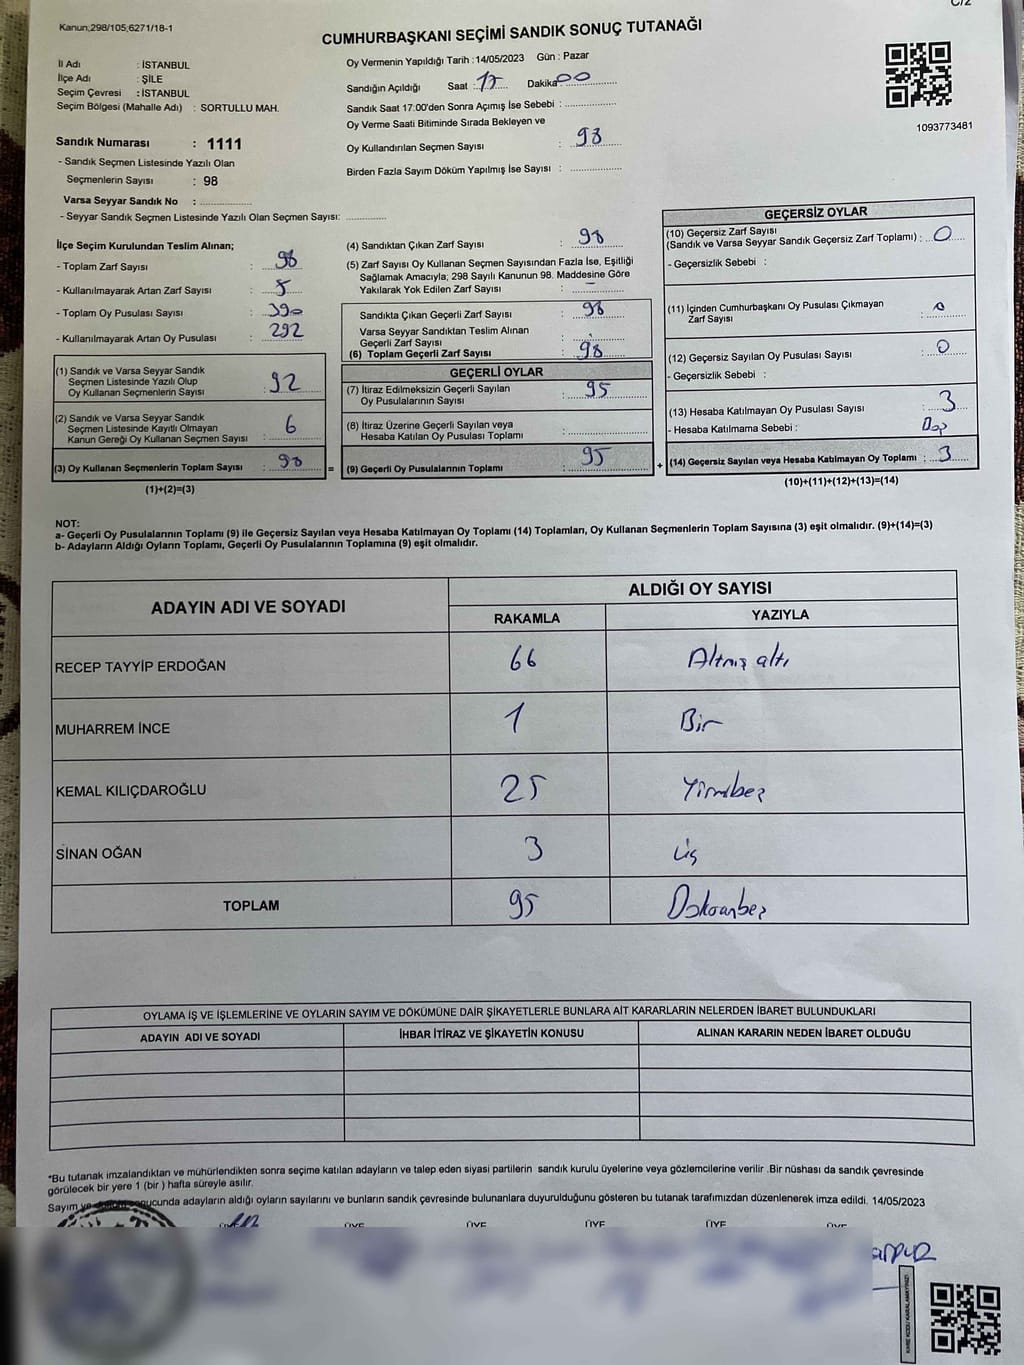 C/2
Kanun;298/105;6271/18-1
CUMHURBAŞKANI SEÇİMİ SANDIK SONUÇ TUTANAĞI
İl Adı : İSTANBUL
İlçe Adı : ŞİLE
Seçim Çevresi : İSTANBUL
Seçim Bölgesi (Mahalle Adı) : SORTULLU MAH.
Sandık Numarası : 1111
- Sandık Seçmen Listesinde Yazılı Olan
Seçmenlerin Sayısı : 98
Varsa Seyyar Sandık No : ..............
- Seyyar Sandık Seçmen Listesinde Yazılı Olan Seçmen Sayısı: ............
Oy Vermenin Yapıldığı Tarih : 14/05/2023 Gün : Pazar
Sandığın Açıldığı Saat : 17 Dakika 00
Sandık Saat 17:00'den Sonra Açımış İse Sebebi : ..............
Oy Verme Saati Bitiminde Sırada Bekleyen ve
Oy Kullandırılan Seçmen Sayısı : 98
Birden Fazla Sayım Döküm Yapılmış İse Sayısı : ..............
1093773481
İlçe Seçim Kurulundan Teslim Alınan;
- Toplam Zarf Sayısı : 98
- Kullanılmayarak Artan Zarf Sayısı :
- Toplam Oy Pusulası Sayısı : 390
- Kullanılmayarak Artan Oy Pusulası : 292
(1) Sandık ve Varsa Seyyar Sandık
Seçmen Listesinde Yazılı Olup
Oy Kullanan Seçmenlerin Sayısı : 92
(2) Sandık ve Varsa Seyyar Sandık
Seçmen Listesinde Kayıtlı Olmayan
Kanun Gereği Oy Kullanan Seçmen Sayısı : 6
(3) Oy Kullanan Seçmenlerin Toplam Sayısı : 98
(1)+(2)=(3)
=
(4) Sandıktan Çıkan Zarf Sayısı : 98
(5) Zarf Sayısı Oy Kullanan Seçmen Sayısından Fazla İse, Eşitliği
Sağlamak Amacıyla; 298 Sayılı Kanunun 98. Maddesine Göre
Yakılarak Yok Edilen Zarf Sayısı : -
Sandıkta Çıkan Geçerli Zarf Sayısı : 98
Varsa Seyyar Sandıktan Teslim Alınan
Geçerli Zarf Sayısı :
(6) Toplam Geçerli Zarf Sayısı : 98
GEÇERLİ OYLAR
(7) İtiraz Edilmeksizin Geçerli Sayılan
Oy Pusulalarının Sayısı : 95
(8) İtiraz Üzerine Geçerli Sayılan veya
Hesaba Katılan Oy Pusulası Toplamı :
(9) Geçerli Oy Pusulalarının Toplamı : 95
+
GEÇERSİZ OYLAR
(10) Geçersiz Zarf Sayısı
(Sandık ve Varsa Seyyar Sandık Geçersiz Zarf Toplamı) : 0
- Geçersizlik Sebebi :
(11) İçinden Cumhurbaşkanı Oy Pusulası Çıkmayan
Zarf Sayısı : 0
(12) Geçersiz Sayılan Oy Pusulası Sayısı : 0
- Geçersizlik Sebebi :
(13) Hesaba Katılmayan Oy Pusulası Sayısı : 3
- Hesaba Katılmama Sebebi :
(14) Geçersiz Sayılan veya Hesaba Katılmayan Oy Toplamı : 3
(10)+(11)+(12)+(13)=(14)
NOT:
a- Geçerli Oy Pusulalarının Toplamı (9) ile Geçersiz Sayılan veya Hesaba Katılmayan Oy Toplamı (14) Toplamları, Oy Kullanan Seçmenlerin Toplam Sayısına (3) eşit olmalıdır. (9)+(14)=(3)
b- Adayların Aldığı Oyların Toplamı, Geçerli Oy Pusulalarının Toplamına (9) eşit olmalıdır.
ADAYIN ADI VE SOYADI
ALDIĞI OY SAYISI
RAKAMLA YAZIYLA
RECEP TAYYİP ERDOĞAN 66 Altmış altı
MUHARREM İNCE 1 Bir
KEMAL KILIÇDAROĞLU 25 Yirmibeş
SİNAN OĞAN 3 Üç
TOPLAM 95 Doksanbeş
OYLAMA İŞ VE İŞLEMLERİNE VE OYLARIN SAYIM VE DÖKÜMÜNE DAİR ŞİKAYETLERLE BUNLARA AİT KARARLARIN NELERDEN İBARET BULUNDUKLARI
ADAYIN ADI VE SOYADI İHBAR İTİRAZ VE ŞİKAYETİN KONUSU ALINAN KARARIN NEDEN İBARET OLDUĞU
*Bu tutanak imzalandıktan ve mühürlendikten sonra seçime katılan adayların ve talep eden siyasi partilerin sandık kurulu üyelerine veya gözlemcilerine verilir .Bir nüshası da sandık çevresinde
görülecek bir yere 1 (bir ) hafta süreyle asılır.
Sayım ve ucunda adayların aldığı oyların sayılarını ve bunların sandık çevresinde bulunanlara duyurulduğunu gösteren bu tutanak tarafımızdan düzenlenerek imza edildi. 14/05/2023
ÜYE ÜYE ÜYE ÜYE ÜYE
KARE KODU KARALAMAYINIZ!